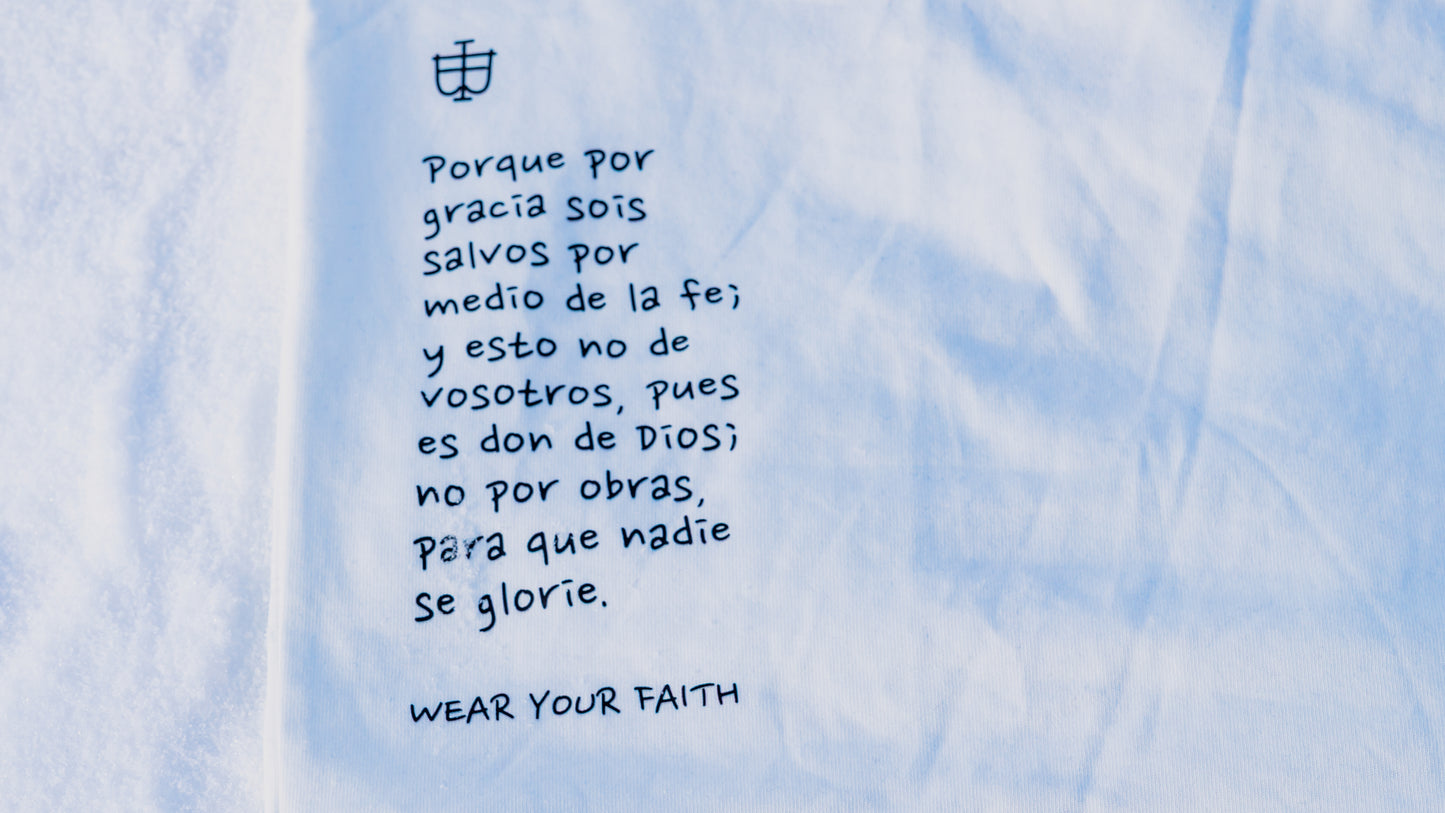 Porque por
gracia sois
salvos por
medio de la fe;
y esto no de
vosotros, pues
es don de Dios;
no por obras,
para que nadie
se gloríe.
WEAR YOUR FAITH